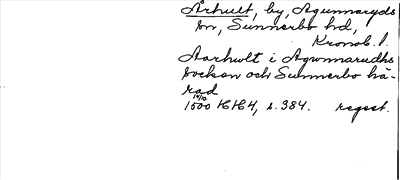 Århult, by, Agunnaryds
sn, Sunnerbo hd,
Kronob. l.
Aarhwlt i Agwnnarudhs
sockan och Sunnerbo hä-
rad
19/10
1500 HH4, s. 384. regest.